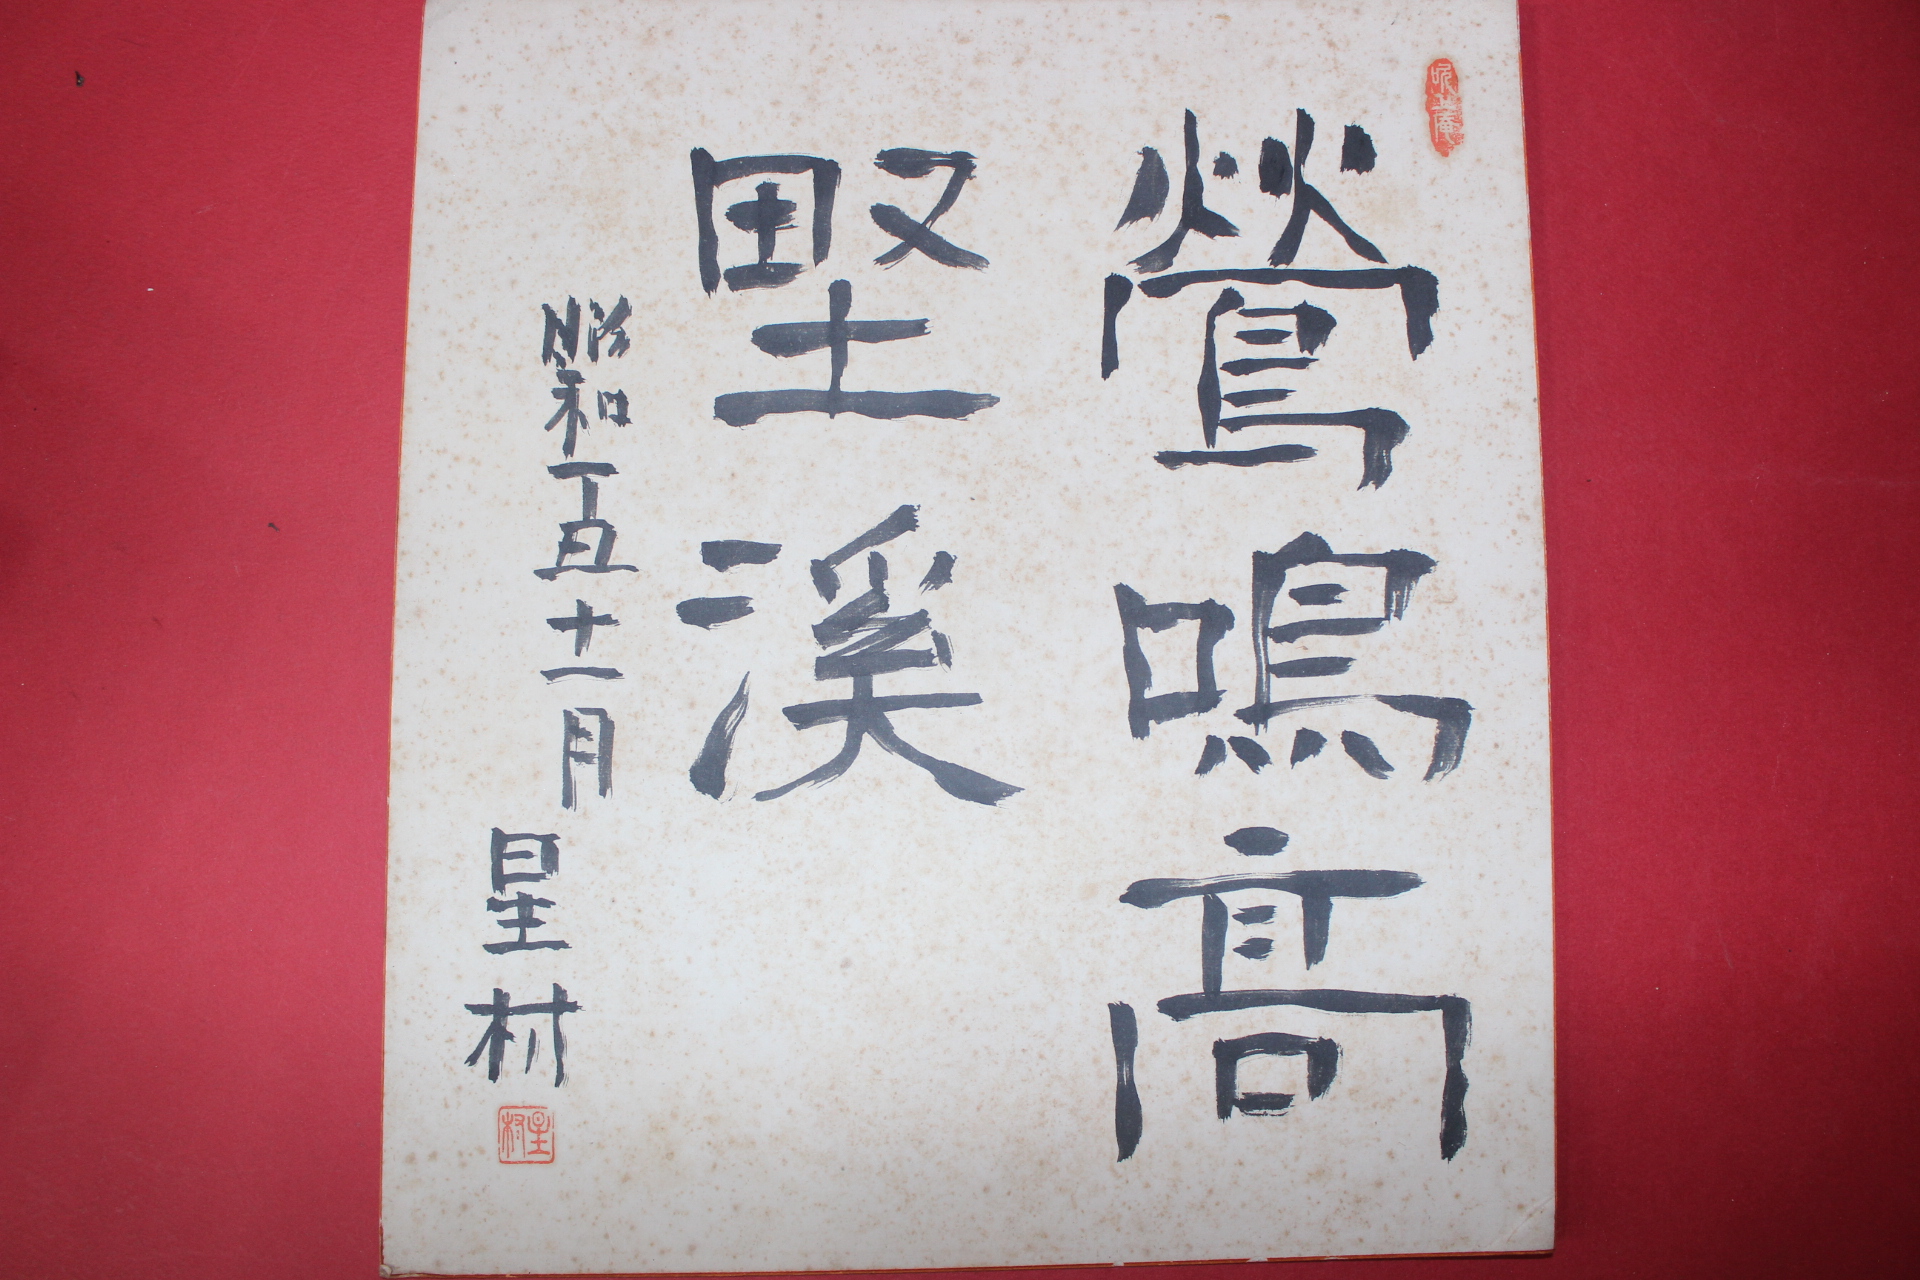 鶯鳴高
野溪
昭和丁丑十一月 星村
星村